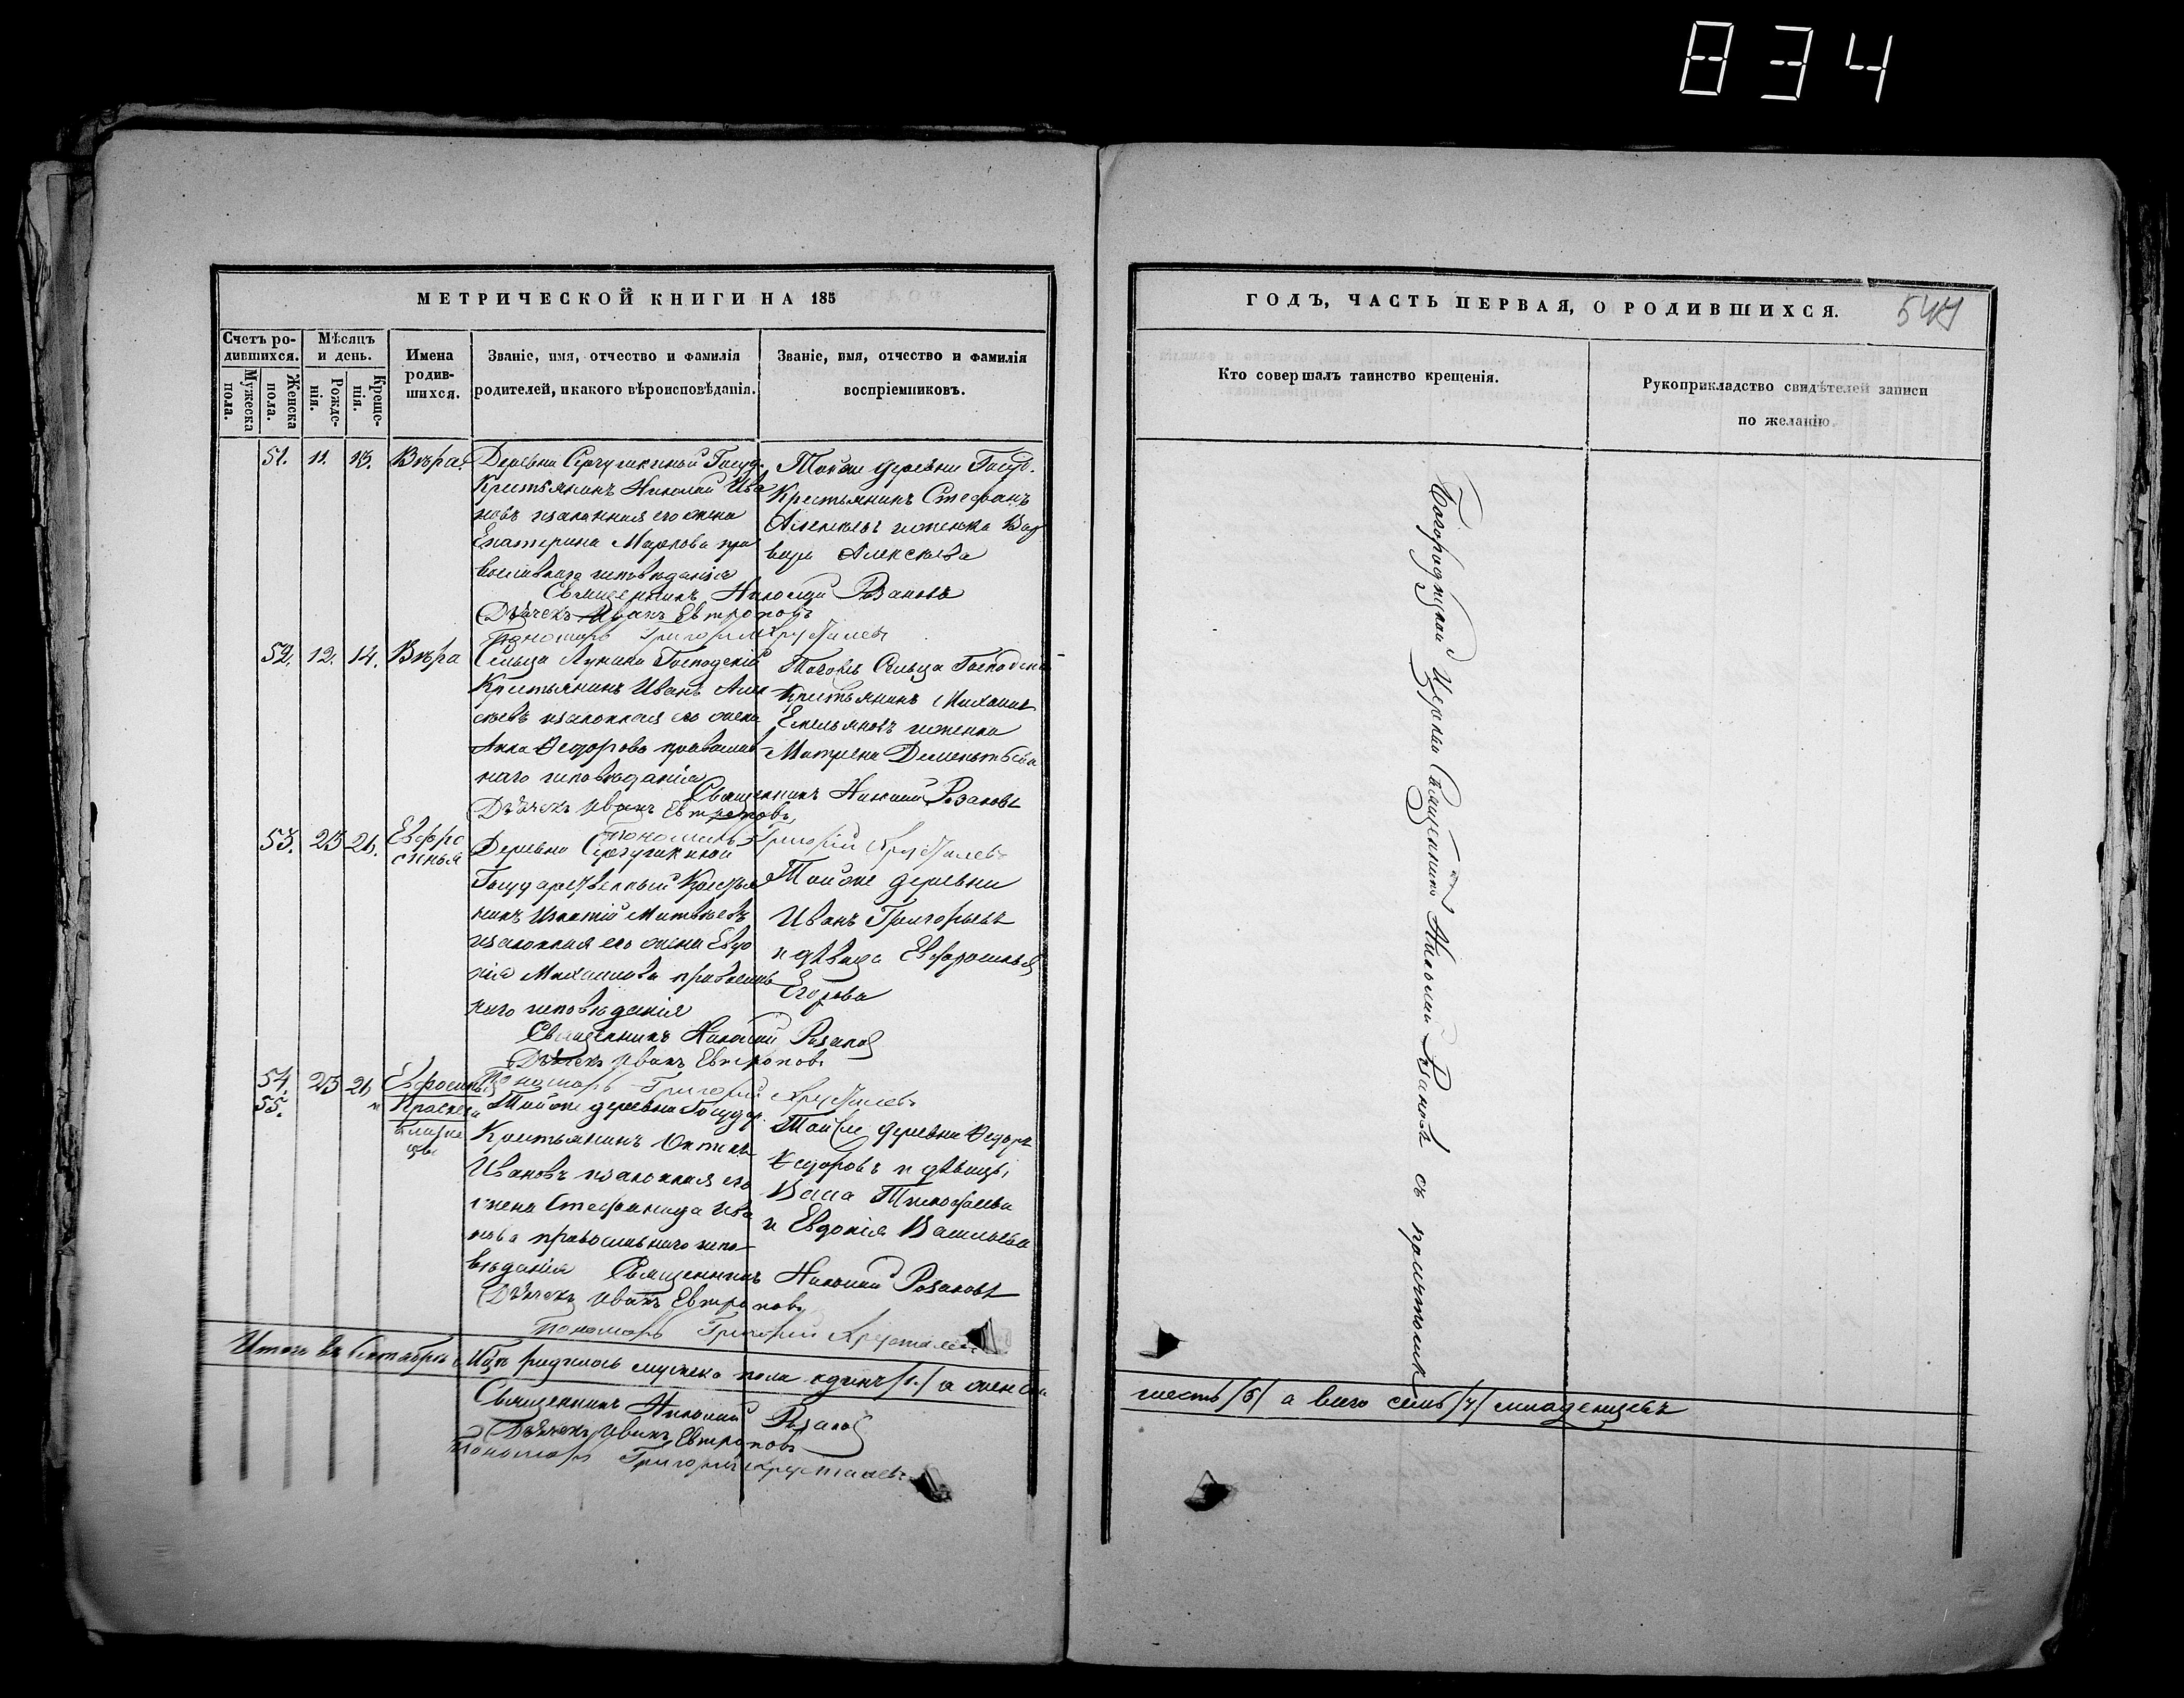 834
МЕТРИЧЕСКОЙ КНИГИ НА 185
Счетъ ро-
дившихся.
Мужеска
пола.
Женска
пола.
Мѣсяцъ
и день.
Рожде-
нія.
Креще-
нія.
Имена
родив-
шихся.
Званіе, имя, отчество и фамилія
родителей, и какого вѣроисповѣданія.
Званіе, имя, отчество и фамилія
воспріемниковъ.
51. 11. 13. Вѣра
Деревни Госуд.
Крестьянинъ Николай Ива
новъ и законная его жена
Екатерина Маркова пра
вославнаго исповѣданія
Тойже деревни Госуд.
Крестьянинъ Стефанъ
Алексѣевъ и женка Вар
вара Алексѣева
Священникъ Николай Розановъ
Дьячекъ Иванъ Евтроповъ
Пономарь Григорий Хрусталевъ
52. 12. 14. Вѣра
Сельца Лунина Господскій
Крестьянинъ Иванъ Алек
сѣевъ и законная его жена
Анна Ѳедорова православ
наго исповѣданія
Тогожъ Сельца Господскій
Крестьянинъ Михаилъ
Емельяновъ и женка
Матрена Дементьева
Священникъ Николай Розановъ
Дьячекъ Иванъ Евтроповъ,
Пономарь Григорій Хрусталевъ
53. 25 26. Евфро
синья
Деревни
Государственный Крестья
нинъ Игнатій Матвѣевъ
и законная его жена Евдо
кія Михайлова православ
наго исповѣданія
Тойже деревни
Иванъ Григорьевъ
и дѣвица Евфросинья
Егорова
Священникъ Николай Розановъ
Дьячекъ Иванъ Евтроповъ
Пономарь Григорий Хрусталевъ
54. 25 26 Евфросинья
55. и Праскева
близне
цы
Тойже деревни Государ.
Крестьянинъ
Ивановъ и законная его
жена Стефанида Ива
нова православнаго испо
вѣданія
Тойже деревни Ѳедоръ
Ѳедоровъ и дѣвицы,
Васса Тимофеева
и Евдокія Васильева
Священникъ Николай Розановъ
Дьячекъ Иванъ Евтроповъ
Пономарь Григорий Хрусталевъ
Итого въ Сентябрѣ м-цѣ родилось мужеска пола одинъ /1./ а женска
Священникъ Николай Розановъ
Дьячекъ Иванъ Евтроповъ
Пономарь Григорий Хрусталевъ
ГОДЪ, ЧАСТЬ ПЕРВАЯ, О РОДИВШИХСЯ.
Кто совершалъ таинство крещенія.
Рукоприкладство свидѣтелей записи
по желанію.
Богородицкой Церкви Священникъ Николай Розановъ съ причтомъ
шесть /6/ а всего семь /7/ младенцевъ